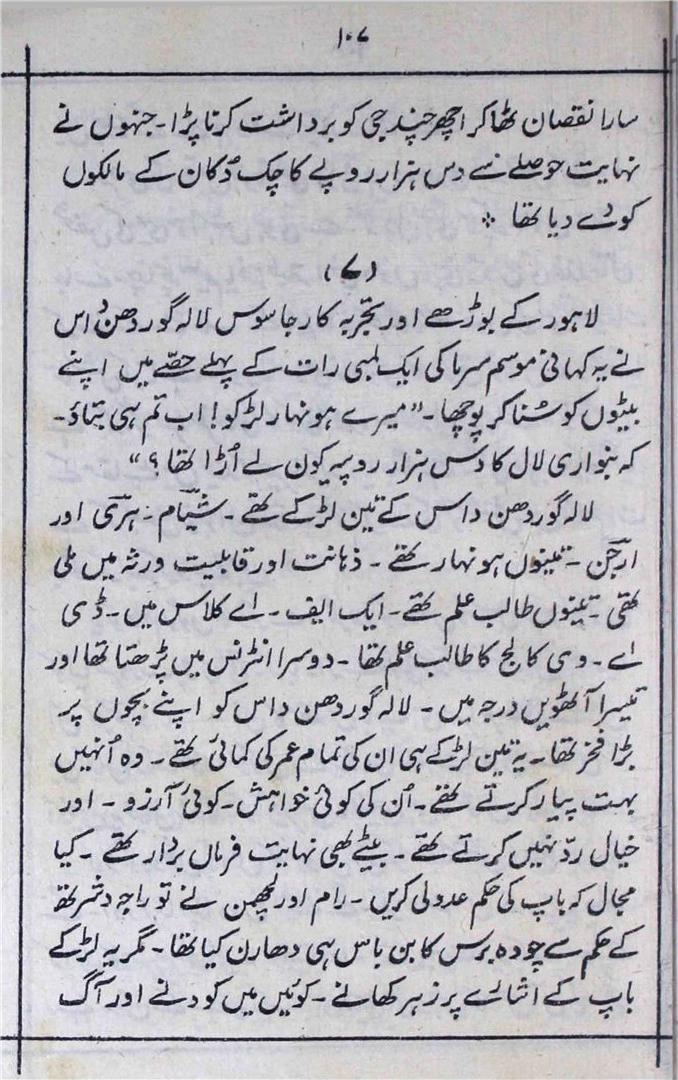 ۱۰۷
سارا نقصان ٹھاکر اچھر چند جی کو برداشت کرنا پڑا۔ جنہوں نے
نہایت حوصلے سے دس ہزار روپے کا چک دُکان کے مالکوں
کو دے دیا تھا ٭
(۷)
لاہور کے بوڑھے اور تجربہ کار جاسوس لالہ گوردھن داس
نے یہ کہانی موسم سرما کی ایک لمبی رات کے پہلے حصّے میں اپنے
بیٹوں کو سُنا کر پوچھا۔ "میرے ہونہار لڑکو! اب تم ہی بتاؤ۔
کہ بنواری لال کا دس ہزار روپیہ کون لے اُڑا تھا؟"
لالہ گوردھن داس کے تین لڑکے تھے۔ شیام۔ ہری اور
ارجن۔ تینوں ہونہار تھے۔ ذہانت اور قابلیت ورثہ میں ملی
تھی۔ تینوں طالب علم تھے۔ ایک ایف۔ اے کلاس میں۔ ڈی
اے۔ وی کالج کا طالب علم تھا۔ دوسرا انٹرنس میں پڑھتا تھا اور
تیسرا آٹھویں درجہ میں۔ لالہ گوردھن داس کو اپنے بچوں پر
بڑا فخر تھا۔ یہ تین لڑکے ہی ان کی تمام عمر کی کمائی تھے۔ وہ اُنہیں
بہت پیار کرتے تھے۔ اُن کی کوئی خواہش۔ کوئی آرزو۔ اور
خیال ردّ نہیں کرتے تھے۔ بیٹے بھی نہایت فرماں بردار تھے۔ کیا
مجال کہ باپ کی حکم عدولی کریں۔ رام اور لچھمن نے تو راجہ دشرتھ
کے حکم سے چودہ برس کا بن باس ہی دھارن کیا تھا۔ مگر یہ لڑکے
باپ کے اشارے پر زہر کھانے۔ کوئیں میں کودنے اور آگ